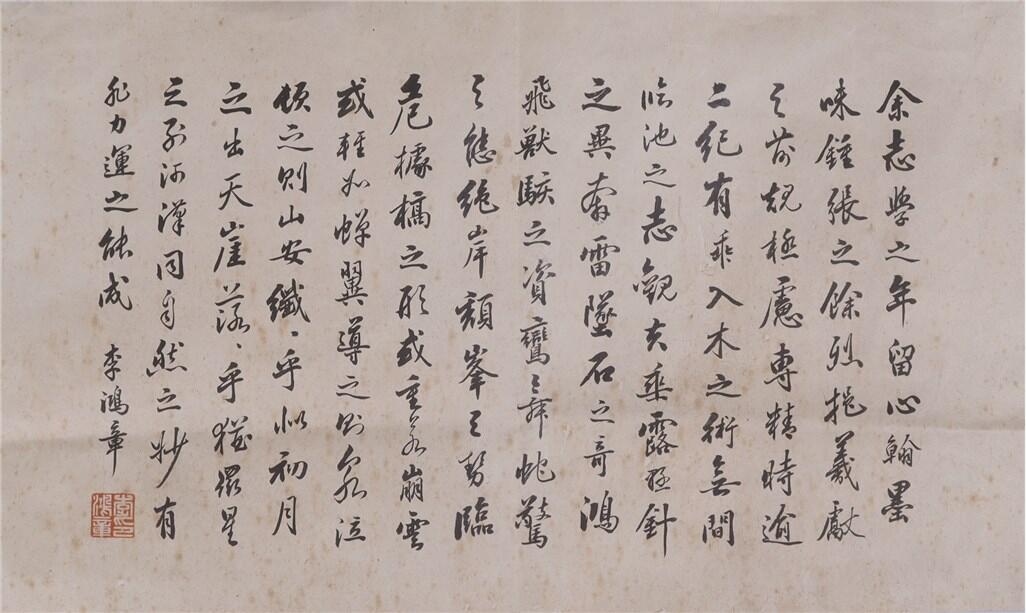 余志學之年留心翰墨
味鍾張之餘烈挹羲獻
之前規極慮專精時逾
二紀有乖入木之術無間
臨池之志觀夫垂露懸針
之異奔雷墜石之奇鴻
飛獸駭之資鸞之舞蛇驚
之態絶岸頹峯之勢臨
危據槁之形或重若崩雲
或輕如蟬翼導之則泉注
頓之則山安纖〻乎似初月
之出天崖落〻乎猶衆星
之列河漢同自然之妙有
非力運之能成 李鴻章
李鴻章印